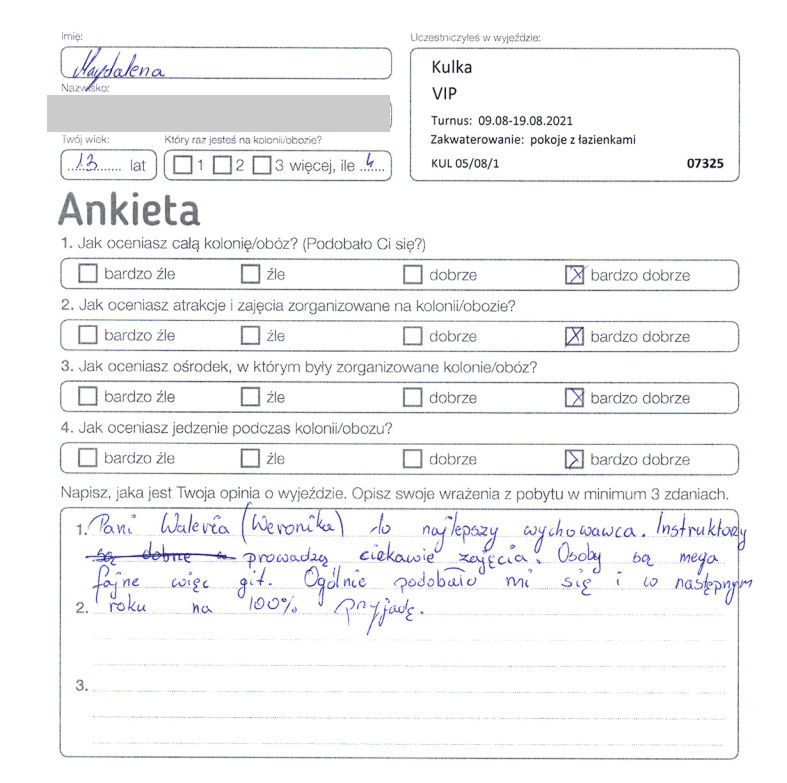 Imię:
Magdalena
Nazwisko:
Twój wiek:
Który raz jesteś na kolonii/obozie?
13 lat
1 2 3 więcej, ile 4
Uczestniczyłeś w wyjeździe:
Kulka
VIP
Turnus: 09.08-19.08.2021
Zakwaterowanie: pokoje z łazienkami
KUL 05/08/1 07325
Ankieta
1. Jak oceniasz całą kolonię/obóz? (Podobało Ci się?)
bardzo źle źle dobrze bardzo dobrze
2. Jak oceniasz atrakcje i zajęcia zorganizowane na kolonii/obozie?
bardzo źle źle dobrze bardzo dobrze
3. Jak oceniasz ośrodek, w którym były zorganizowane kolonie/obóz?
bardzo źle źle dobrze bardzo dobrze
4. Jak oceniasz jedzenie podczas kolonii/obozu?
bardzo źle źle dobrze bardzo dobrze
Napisz, jaka jest Twoja opinia o wyjeździe. Opisz swoje wrażenia z pobytu w minimum 3 zdaniach.
1. Pani (Weronika) to najlepszy wychowawca. Instruktorzy
są dobrze a prowadzą ciekawie zajęcia. Osoby są mega
fajne więc git. Ogólnie podobało mi się i w następnym
2. roku na 100% przyjadę.
3.